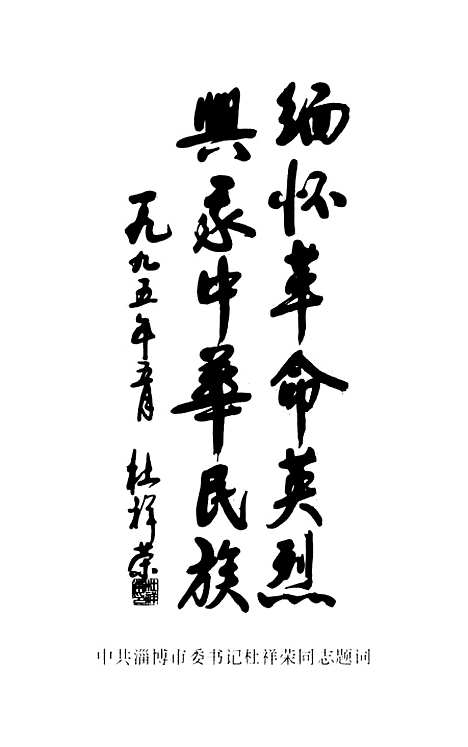 缅怀革命英烈
興我中华民族
一九九五年五月 杜祥荣
中共淄博市委书记杜祥荣同志题词